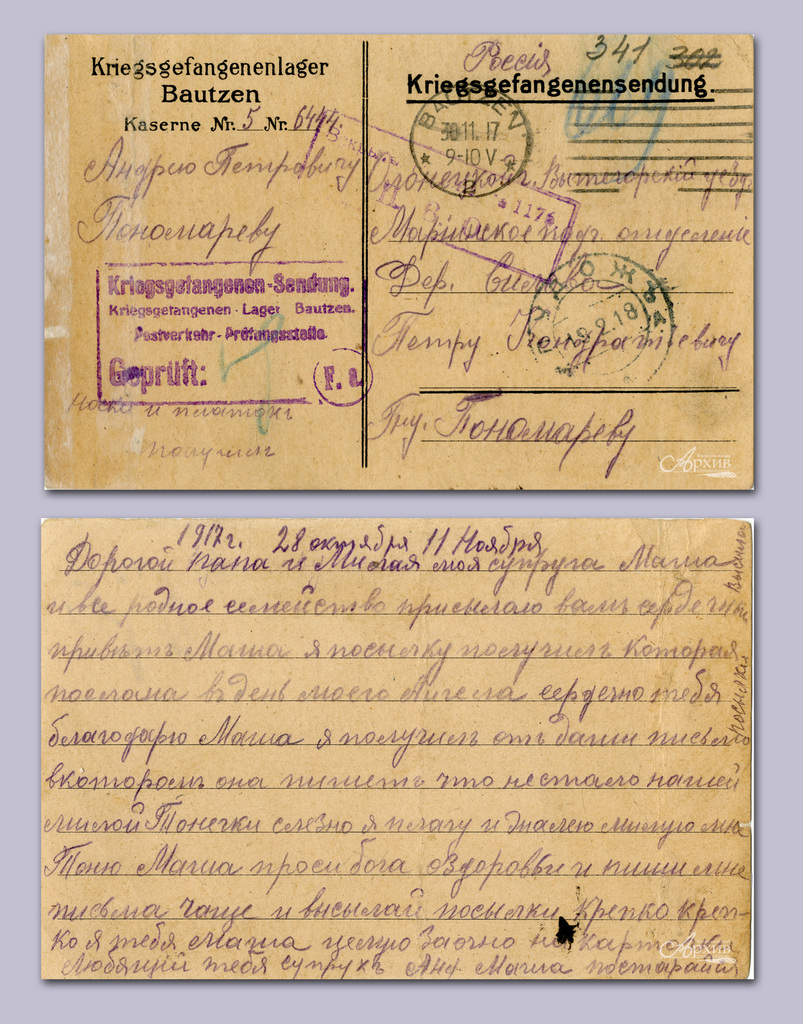 Kriegsgefangenenlager
Bautzen
Kaserne Nr. 5 Nr. 6444.
Андрею Петровичу
Пономареву
Kriegsgefangenen-Sendung.
Kriegsgefangenen-Lager Bautzen.
Postverkehr-Prüfungsstelle.
Geprüft:
F. a
Носки и платокъ
получилъ
Россія
341
302
Kriegsgefangenensendung.
BAUTZEN
30.11.17
9-10 V
* 2
1176
Олонецкой г. Вытегорскій уезд
Маринское поч. отделение
Дер.
19.2.18
Петру Кондратьевичу
Гну. Пономареву
Архив
1917г. 28 октября 11 Ноября
Дорогой папа и Милая моя супруга Маша
и все родное семейство присылаю вамъ сердечный
приветъ Маша я посылку получилъ которая
послана въ день моего Ангела сердечно тебя
благодарю Маша я получилъ отъ баши письмо
вкоторомъ она пишетъ что нестало нашей
милой Тонечки слезно я плачу и жалею милую мне
Тоню Маша проси бога оздоровьи и пиши мне
письма чаще и высылай посылки Крепко креп-
ко я тебя Маша целую Заочно на карточке
Любящий тебя супрухъ Анд Маша постарайся
посылки
Архив